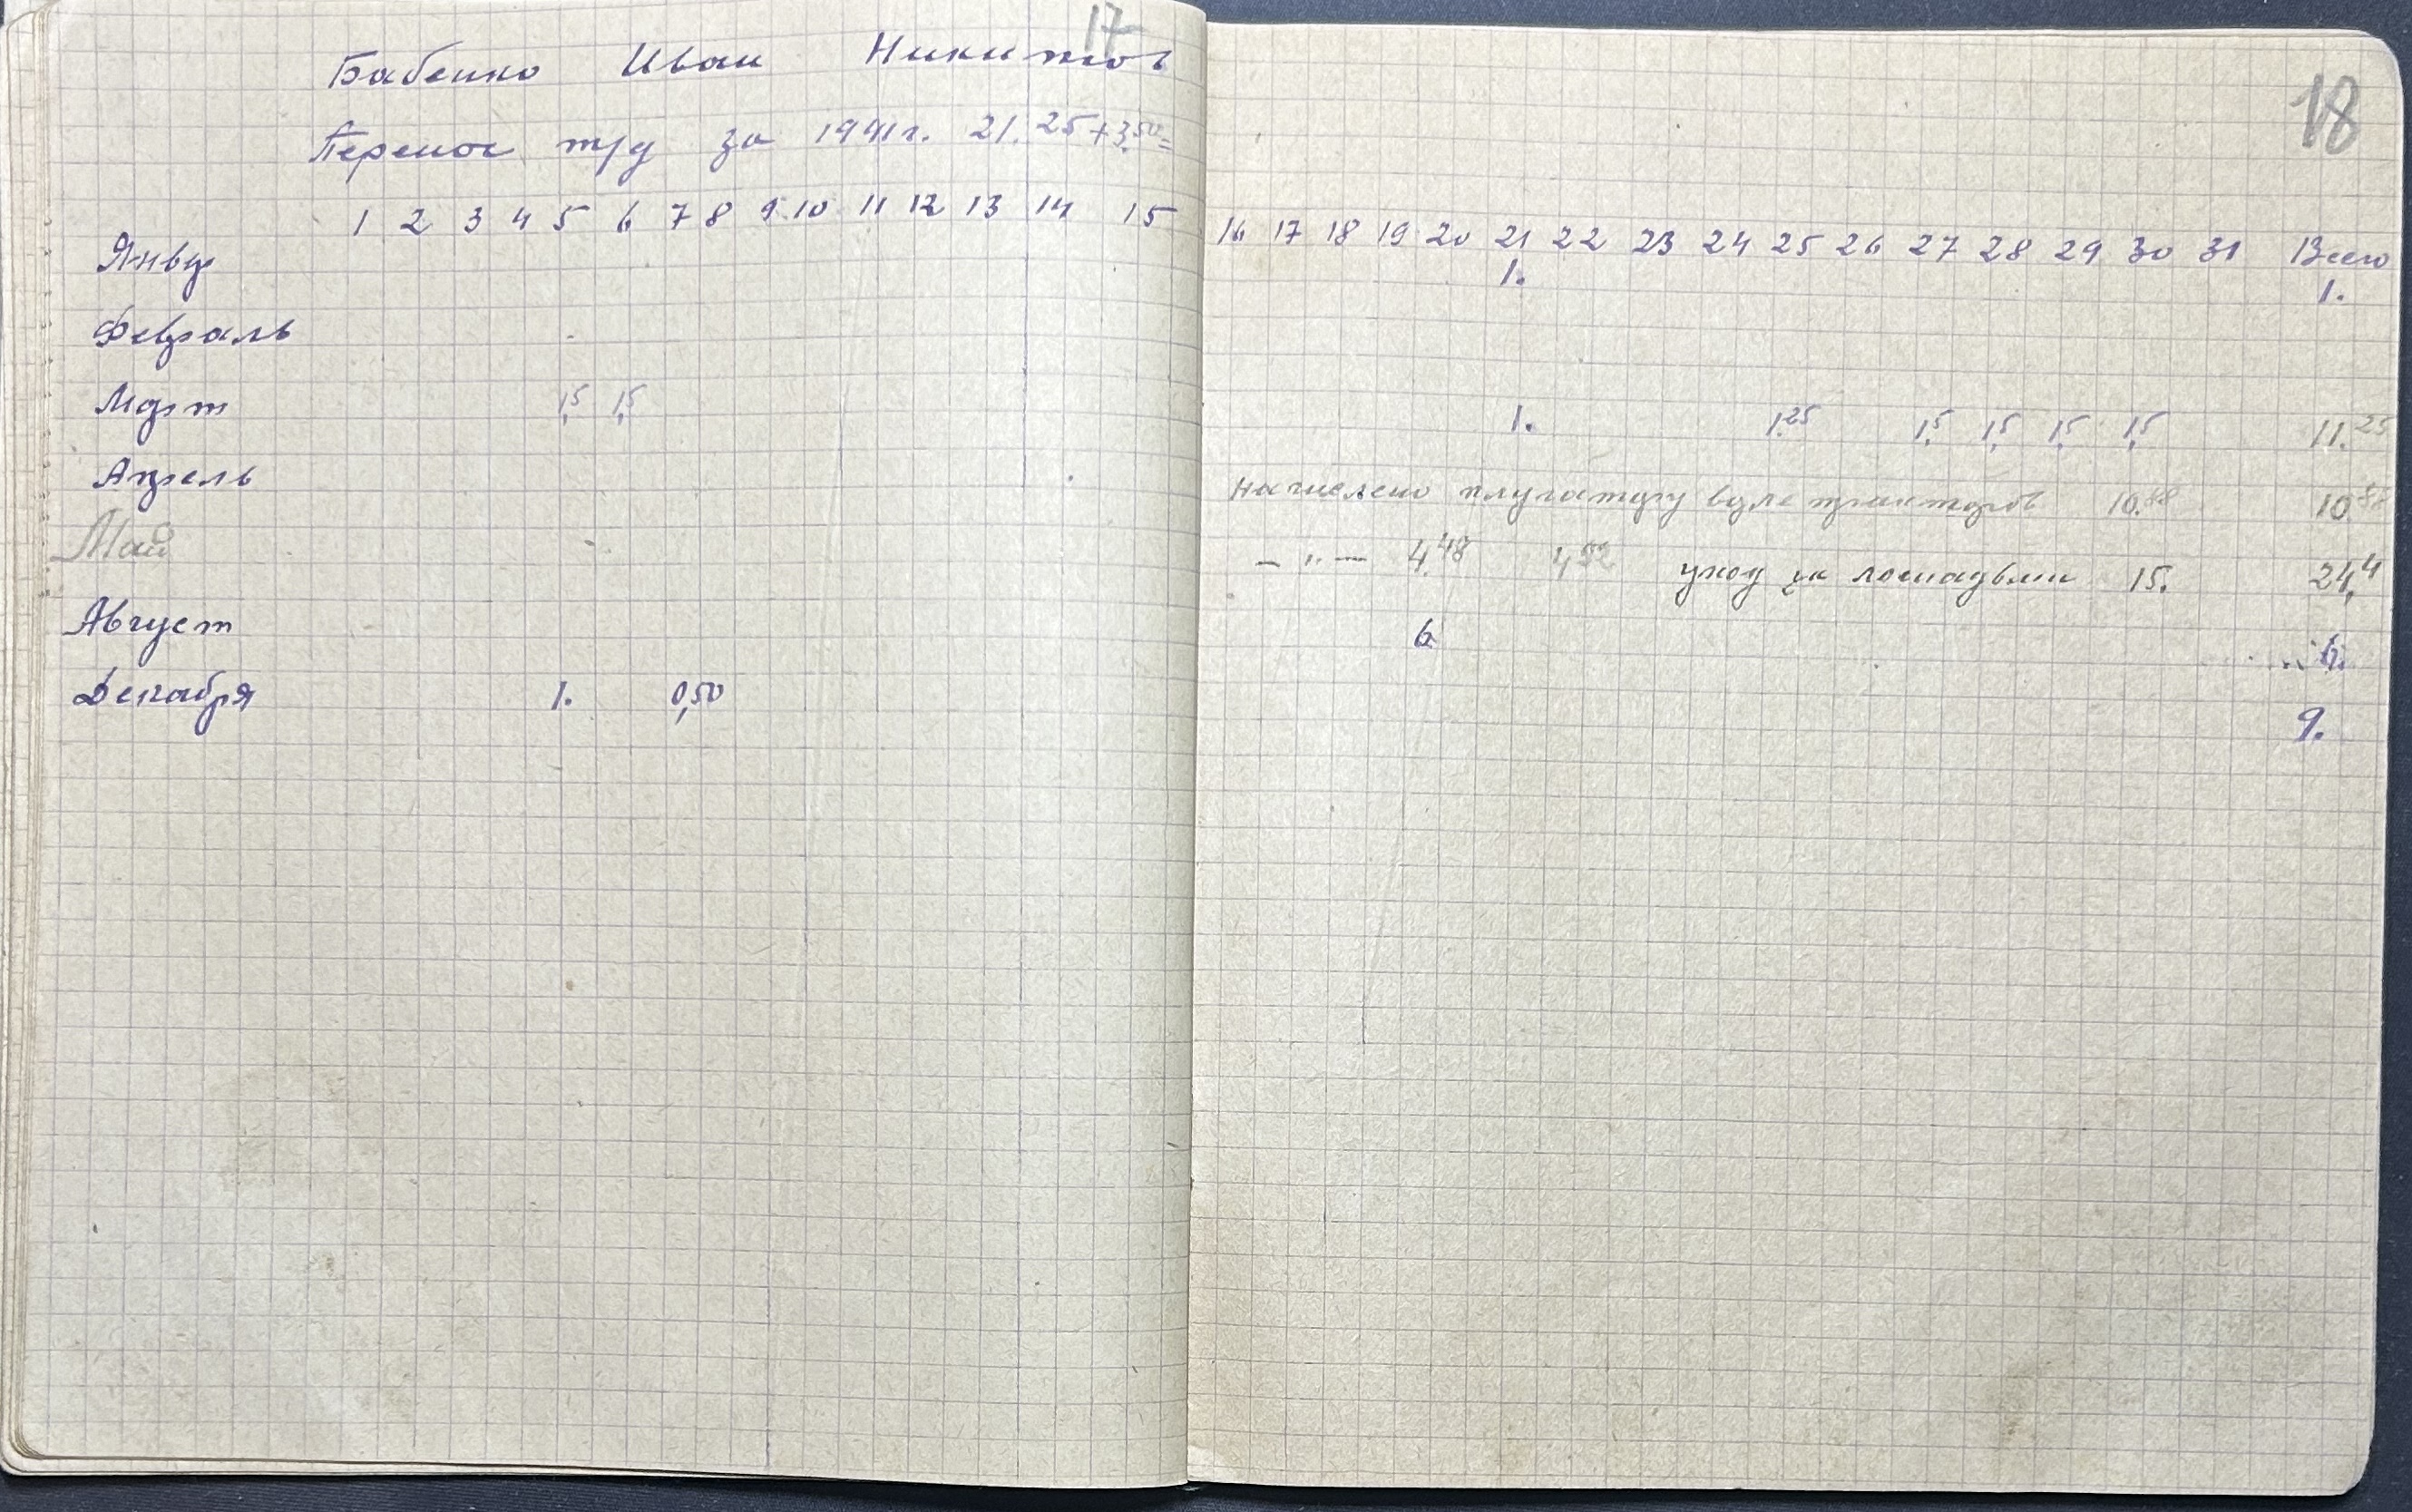 17
Бабенко Иван Никитов
Перенос т/д за 1941г. 21.25+3.50=
1 2 3 4 5 6 7 8 9 10 11 12 13 14 15
Январ
Февраль
Март 1,5 1,5
Апрель
Май
Август
Декабря 1. 0,50
18
16 17 18 19 20 21 22 23 24 25 26 27 28 29 30 31 Всего
1. 1.
1. 1.25 1,5 1,5 1,5 1,5 11.25
начислено плугатору возле тракторов 10.88 10.88
— " — 4.48 4,92 уход за лошадьми 15. 24,4
6 6.
9.